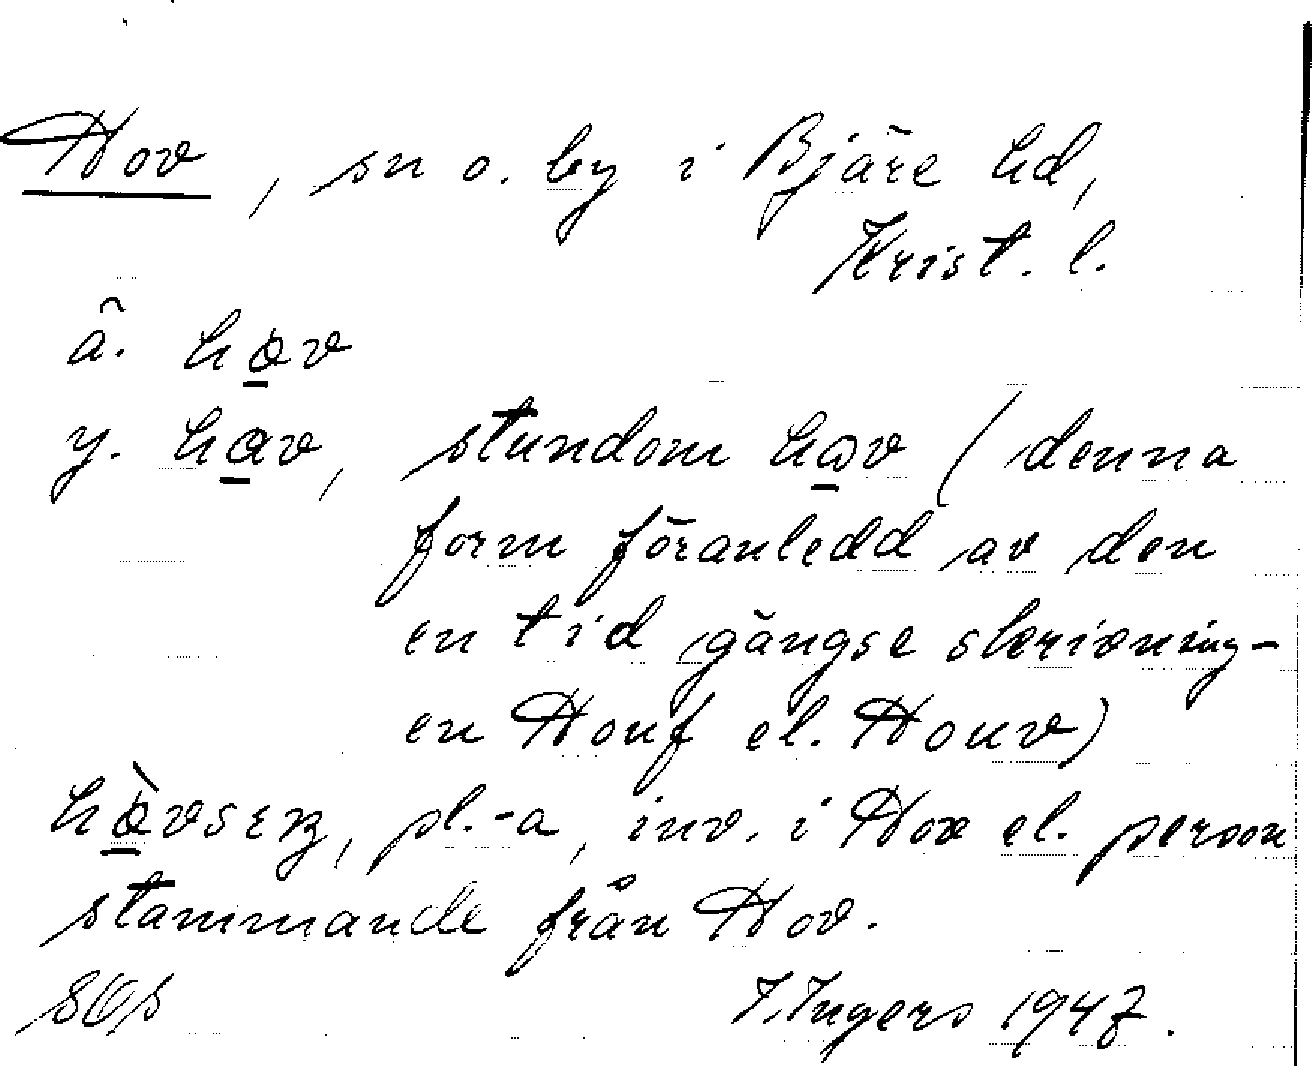 Hov, sn o. by i Bjäre hd,
Krist. l.
ä. hov
y. hav, stundom hɷv (denna
form föranledd av den
en tid gängse skrivning-
en Houf el. Houv)
pl. -a, inv. i Hov el. person
stammande från Hov.
I. Ingers 1947.